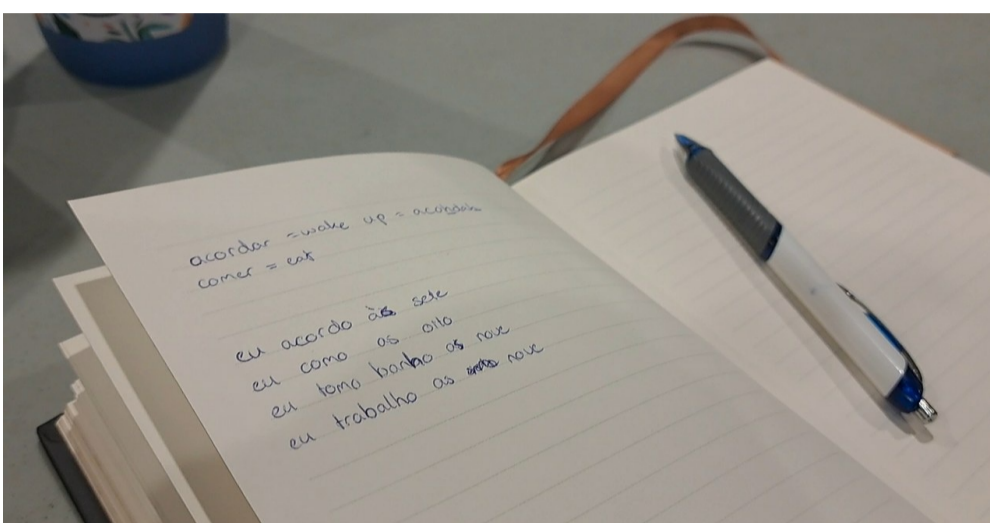 acordar = wake up = acordar
comer = eat
eu acordo às sete
eu como as oito
eu tomo banho as nove
eu trabalho as nove